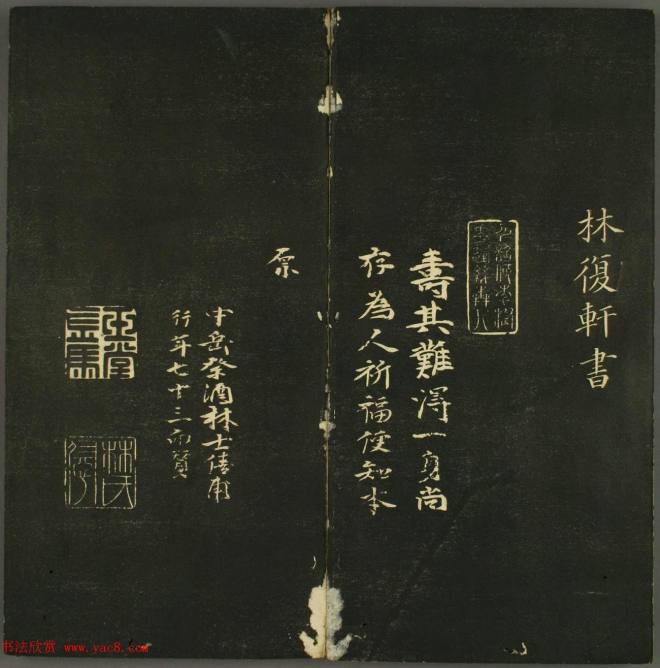 林復軒書
壽其難得一身尚
存為人祈福便知本
原
中岳祭酒林士甫
行年七十三而贊
玉堂
金馬
林氏
书法欣赏 www.yac8.com